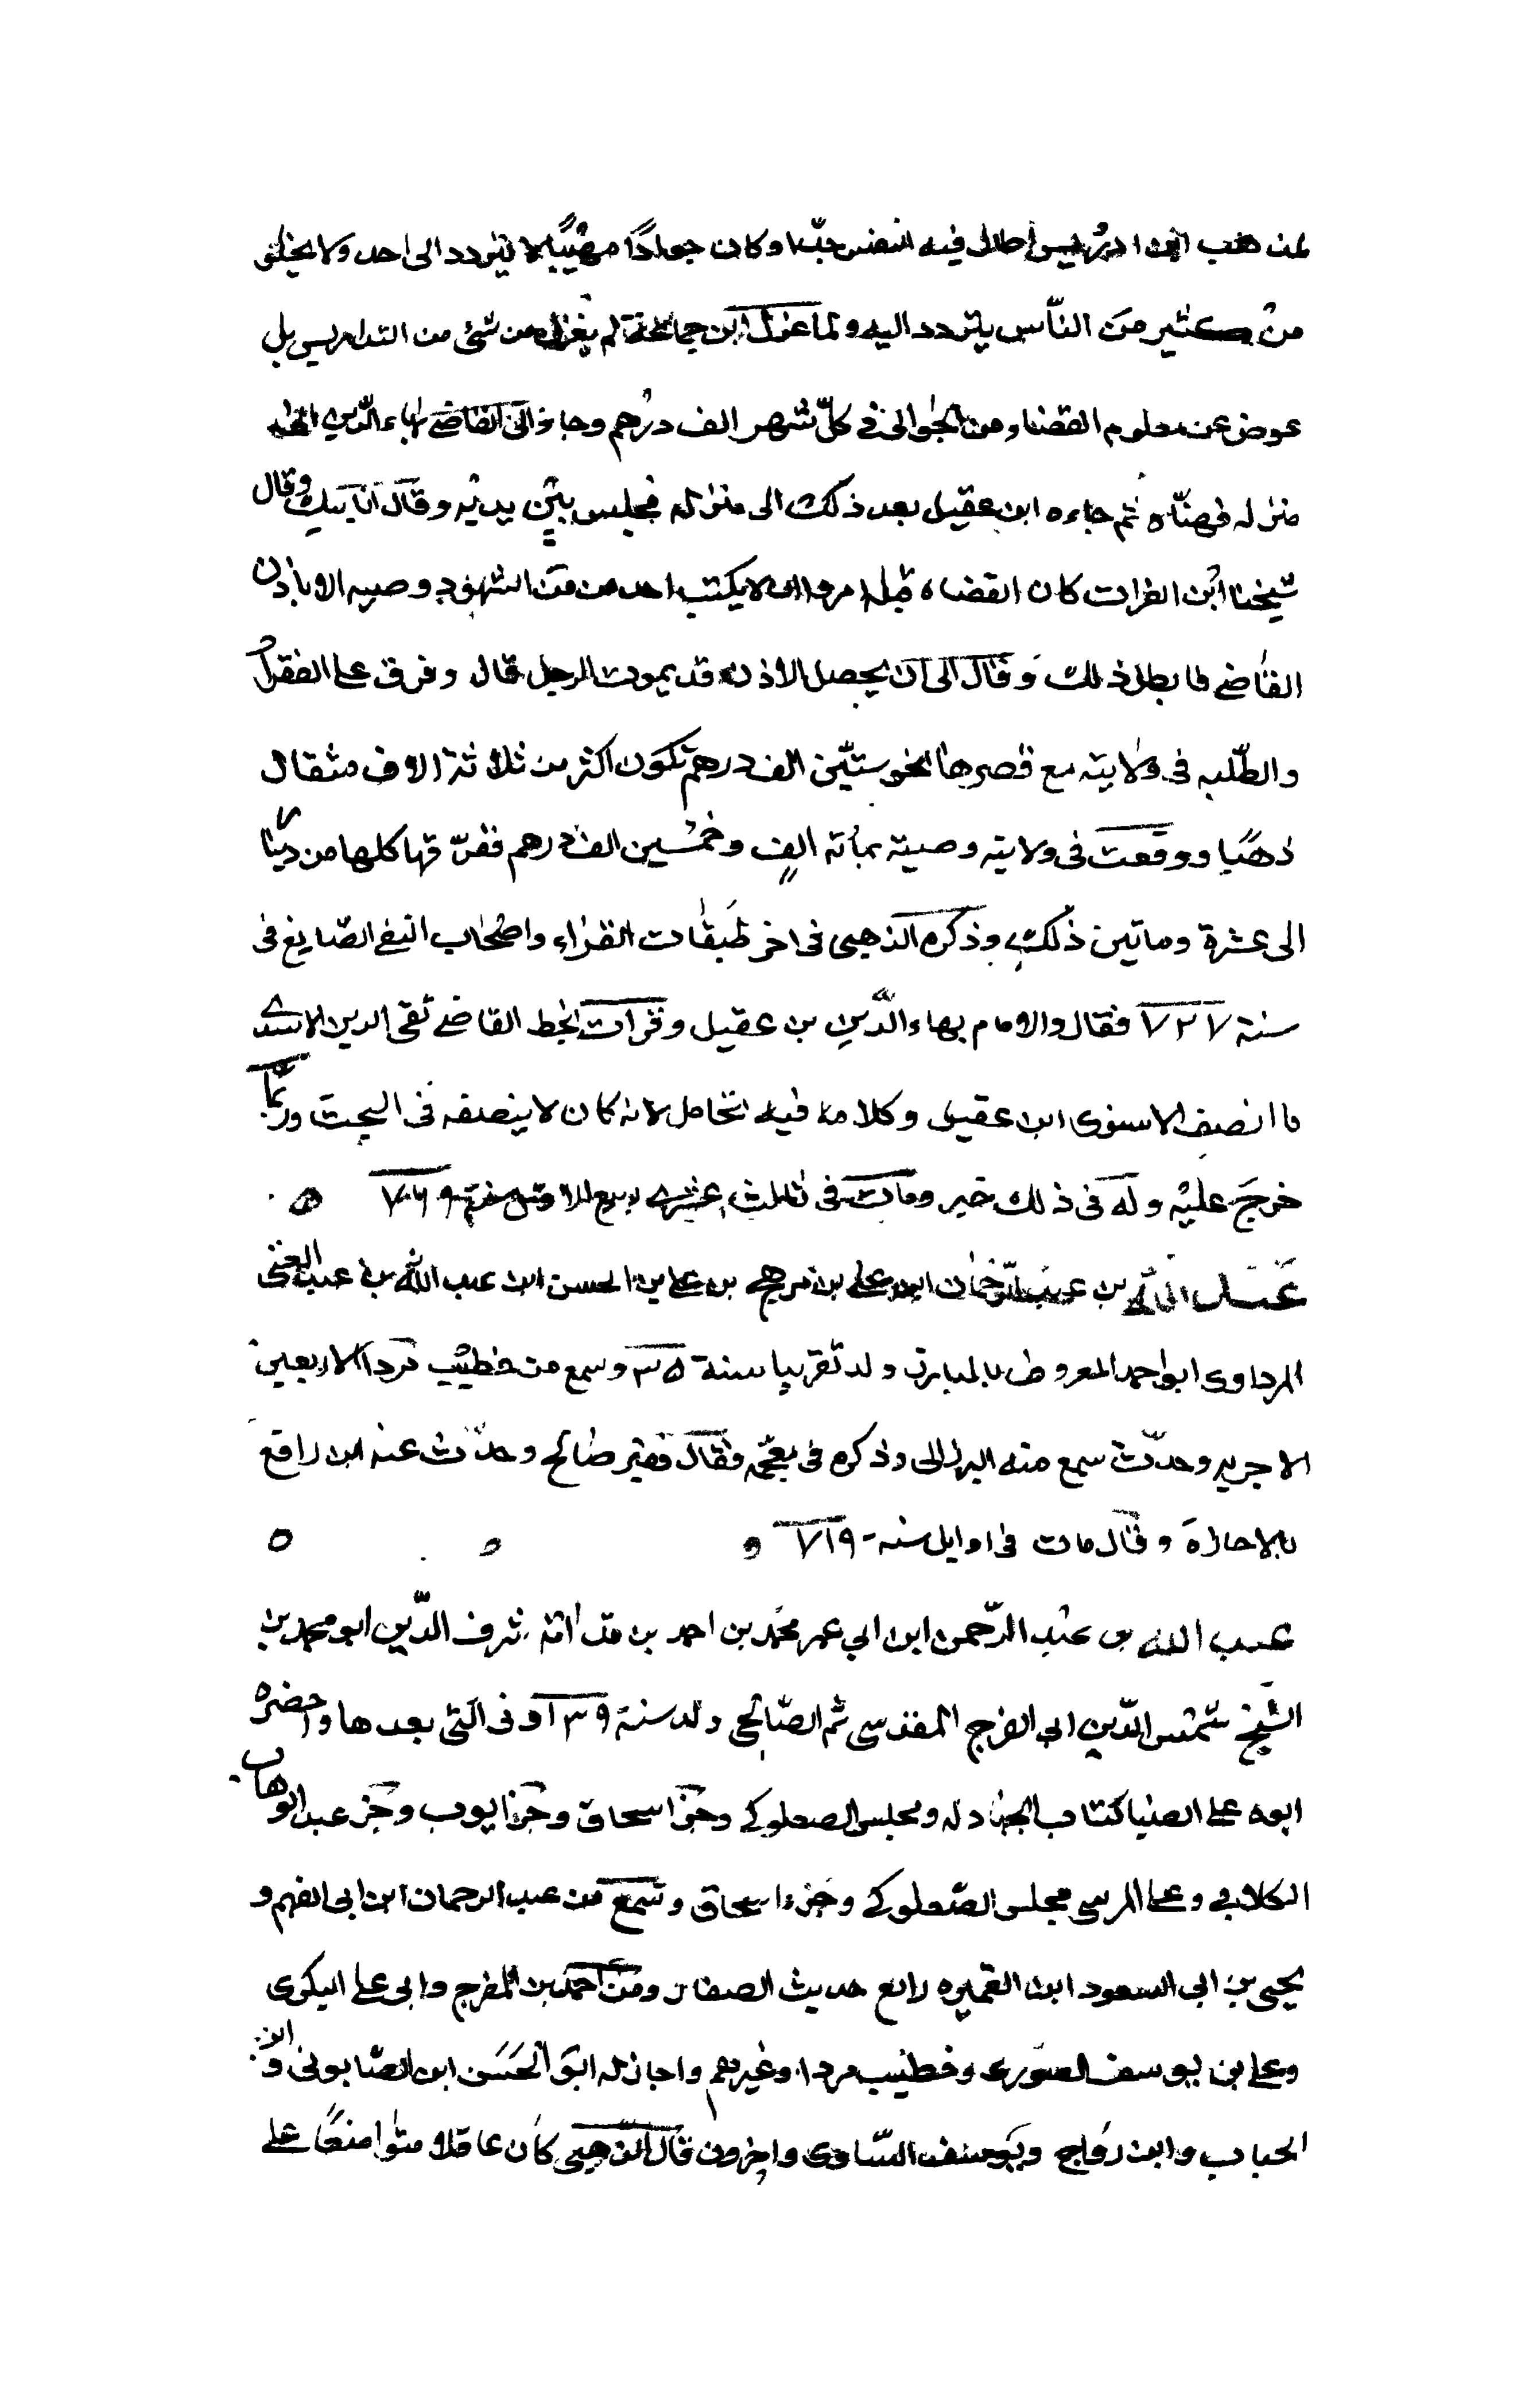 لمذهب ابن ادريس اطال فيه النفس جدا وكان جوادًا مهيبًا لا يتردد الى احد ولا يخلو
من كثير من النّاس يتردد اليه ولما عزل ابن جماعة لم يعزل من شئ من التداريس بل
عوض عن معلوم القضا ومن الجوالى فى كلّ شهر الف درهم وجاء الى القاضي بهاء الدّين الى
منزله فهنّاه ثم جاءه ابن عقيل بعد ذلك الى منزله فجلس بين يديه وقال انا وقال
شيخنا ابن الفرات كان القضاه قبله امروا ان لا يكتب احد من الشهود وصيه الا باذن
القاضي فابطل ذلك وقال الى ان يحصل الاذن قد يموت الرجل قال وفرق على الفقرا
والطّلبه فى ولايته مع قصرها نحو ستّين الف درهم تكون اكثر من ثلاثة الاف مثقال
ذهبًا ووقعت فى ولايته وصية بمائة الف وخمسين الف درهم ففرّقها كلها من دينار
الى عشرة وما بين ذلك وذكره الذهبى فى اخر طبقات القراء واصحاب التقى الصّايغ فى
سنة ٧٢٧ فقال والامام بهاء الدّين بن عقيل وقرات بخط القاضي تقى الدين الاسدي
ما انصف الاسنوى ابن عقيل وكلامه فيه تحامل لانه كان لا ينصفه فى البحث وربما
خرج عليه وله فى ذلك خبر ومات فى ثالث عشري ربيع الاول سنة ٧٦٩ ه
عبد الله بن عبد الرّحمان ابن على بن مرهج بن على بن الحسن ابن عبد الله بن عبد الغنى
المرداوى ابو احمد المعروف بالمبارز ولد تقريبا سنة ٣٥ وسمع من خطيب مردا الاربعين
الاجريه وحدّث سمع منه البرزالى وذكره فى معجمه فقال فقير صالح وحدّث عنه ابن رافع
بالاجازة وقال مات فى اوايل سنة ٧١٩ ه ه ه
عبد الله بن عبد الرّحمن ابن ابي عمر محمد بن احمد بن قدامة شرف الدّين ابو محمد بن
الشيخ شمس الدّين ابى الفرج المقدسى ثم الصّالحى ولد سنة ٣٩ او فى التى بعدها واحضره
ابوه على الضيا كتاب الجنا دله ومجلس الصعلوكي وجزا اسحاق وجزا ايوب وجز عبد الوهاب
الكلابي وعلى المرسى مجلس الصّعلوكي وجزء اسحاق وسمع من عبد الرحمان ابن ابى الفهم و
يحيى بن ابى السعود ابن القميره رابع حديث الصفار ومن احمد بن المفرج وابى على البكرى
وعلى بن يوسف الصورى وخطيب مردا وغيرهم واجاز له ابو الحسن ابن الصّابونى وابن
الحباب وابن رواج ويوسف السّاوى واخرون قال الذهبى كان عاقلا متواضعًا على